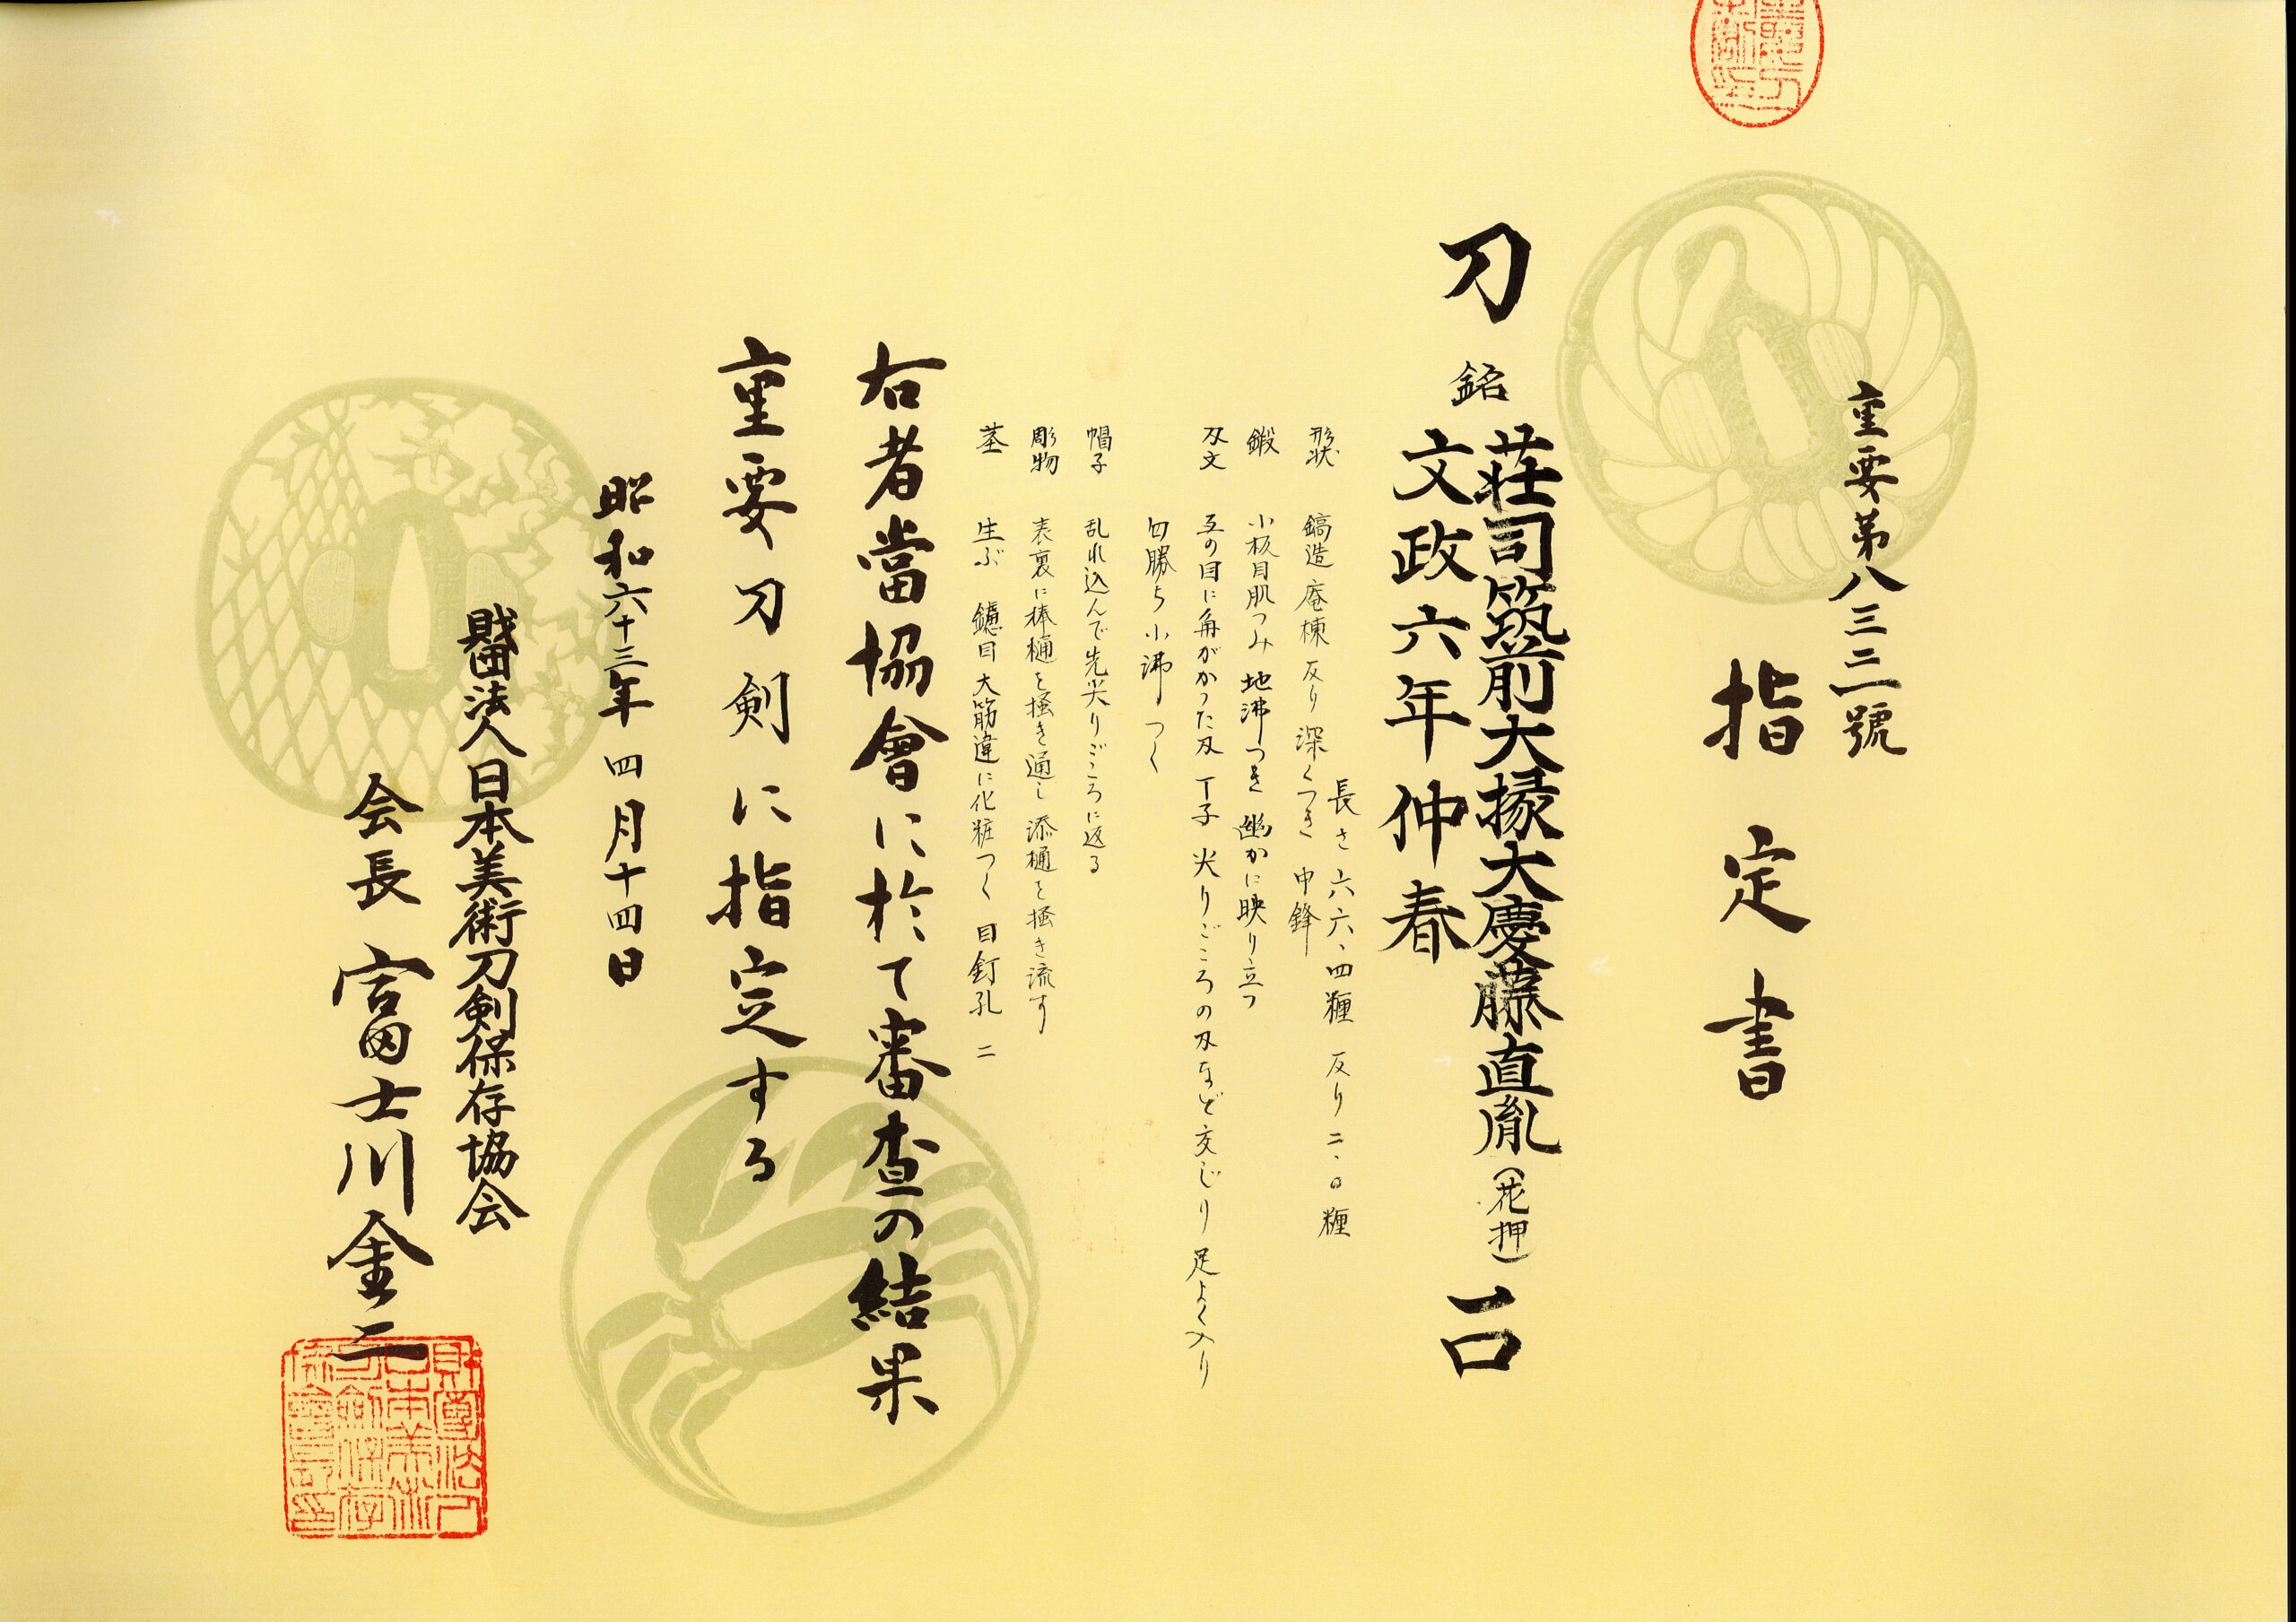 重要第八三二一號
指定書
刀 銘 荘司筑前大掾大慶藤直胤(花押)
文政六年仲春
一口
長さ 六六、四糎 反り 二、〇糎
形状 鎬造 庵棟 反り深くつき 中鋒
鍛 小板目肌つみ 地沸つき 幽かに映り立つ
刃文 互の目に角がかった刃 丁子 尖りごころの刃など交じり 足よく入り
匂勝ち小沸つく
帽子 乱れ込んで先尖りごころに返る
彫物 表裏に棒樋を掻き通し 添樋を掻き流す
茎 生ぶ 鑢目大筋違に化粧つく 目釘孔 二
右者當協會に於て審査の結果
重要刀剣に指定する
昭和六十三年四月十四日
財団法人日本美術刀剣保存協会
会長 富士川金二